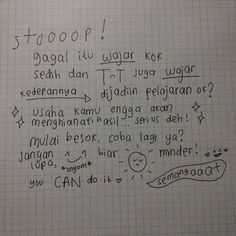 staooop!
gagal itu wajar kok.
sedih dan T^T juga wajar
kedepannya → dijadiin pelajaran ok?
usaha kamu engga akan
menghianati hasil ... serius deh!
mulai besok, coba lagi ya?
jangan lupa, *ngum* biar minder!
you CAN do it
semangaaat